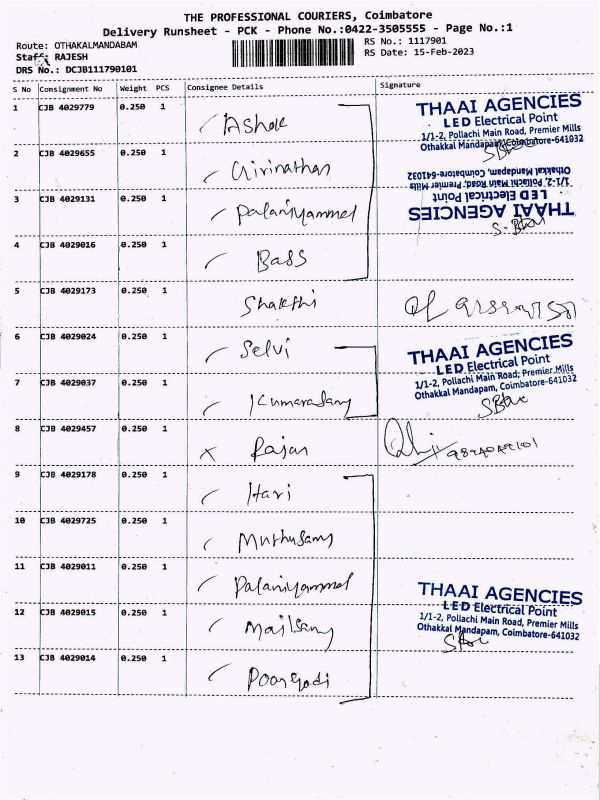 THE PROFESSIONAL COURIERS, Coimbatore
Delivery Runsheet - PCK - Phone No.:0422-3505555 - Page No.:1
Route: OTHAKALMANDABAM
RS No.: 1117901
Staff: RAJESH
RS Date: 15-Feb-2023
DRS No.: DCJB111790101
S No Consignment No Weight PCS Consignee Details Signature
1 CJB 4029779 0.250 1 Ashok
THAAI AGENCIES
LED Electrical Point
1/1-2, Pollachi Main Road, Premier Mills
Othakkal Mandapam, Coimbatore-641032
2 CJB 4029655 0.250 1 Girinathan
THAAI AGENCIES
LED Electrical Point
1/1-2, Pollachi Main Road, Premier Mills
Othakkal Mandapam, Coimbatore-641032
3 CJB 4029131 0.250 1 Palaniyammal
4 CJB 4029016 0.250 1 Bass
5 CJB 4029173 0.250 1 Shakthi
6 CJB 4029024 0.250 1 Selvi
THAAI AGENCIES
LED Electrical Point
1/1-2, Pollachi Main Road, Premier Mills
Othakkal Mandapam, Coimbatore-641032
7 CJB 4029037 0.250 1 Kumarasamy
8 CJB 4029457 0.250 1 Rajan
9 CJB 4029178 0.250 1 Hari
10 CJB 4029725 0.250 1 Muthusamy
11 CJB 4029011 0.250 1 Palaniyammal
THAAI AGENCIES
LED Electrical Point
1/1-2, Pollachi Main Road, Premier Mills
Othakkal Mandapam, Coimbatore-641032
12 CJB 4029015 0.250 1 Mailsamy
13 CJB 4029014 0.250 1